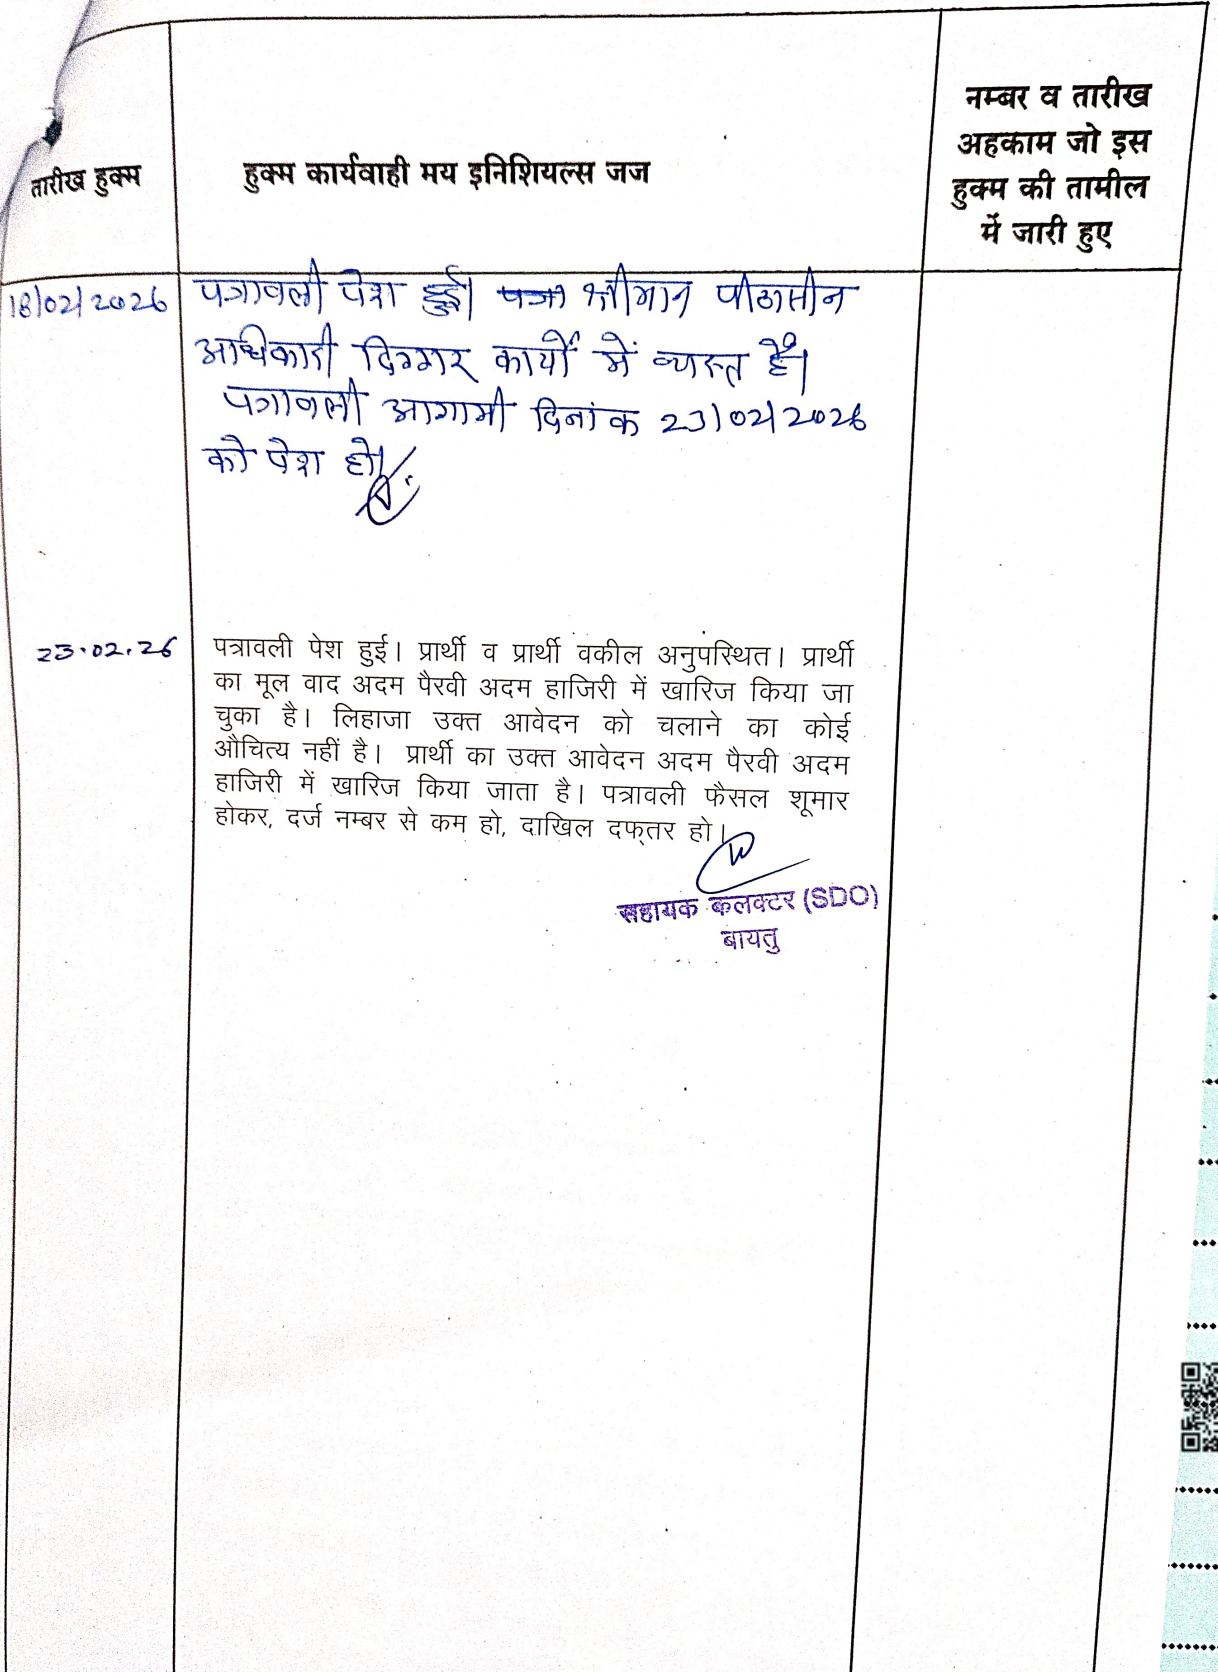 तारीख हुक्म
हुक्म कार्यवाही मय इनिशियल्स जज
नम्बर व तारीख
अहकाम जो इस
हुक्म की तामील
में जारी हुए
18/02/2026
पत्रावली पेश हुई। श्रीमान पीठासीन
अधिकारी दिगर कार्यों में व्यस्त है।
पत्रावली आगामी दिनांक 23/02/2026
को पेश हो।
23.02.26
पत्रावली पेश हुई। प्रार्थी व प्रार्थी वकील अनुपस्थित। प्रार्थी
का मूल वाद अदम पैरवी अदम हाजिरी में खारिज किया जा
चुका है। लिहाजा उक्त आवेदन को चलाने का कोई
औचित्य नहीं है। प्रार्थी का उक्त आवेदन अदम पैरवी अदम
हाजिरी में खारिज किया जाता है। पत्रावली फैसल शूमार
होकर, दर्ज नम्बर से कम हो, दाखिल दफ्तर हो।
सहायक कलक्टर (SDO)
बायतु